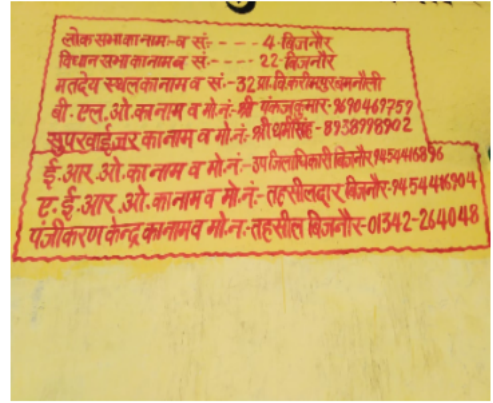 लोक सभा का नाम व सं:- - - - 4-बिजनौर
विधान सभा का नाम व सं:- - - - 22-बिजनौर
मतदेय स्थल का नाम व सं.-32 प्रा.वि.करीमपुर बमनौली
बी. एल. ओ. का नाम व मो.नं:-श्री पंकज कुमार-9690469759
सुपरवाईजर का नाम व मो.नं:-श्री धर्मसिंह-8938998902
ई.आर.ओ. का नाम व मो.नं:-उपजिलाधिकारी बिजनौर 9454416896
ए.ई.आर.ओ. का नाम व मो.नं:-तहसीलदार बिजनौर-9454416904
पंजीकरण केन्द्र का नाम व मो.नं.-तहसील बिजनौर-01342-264048